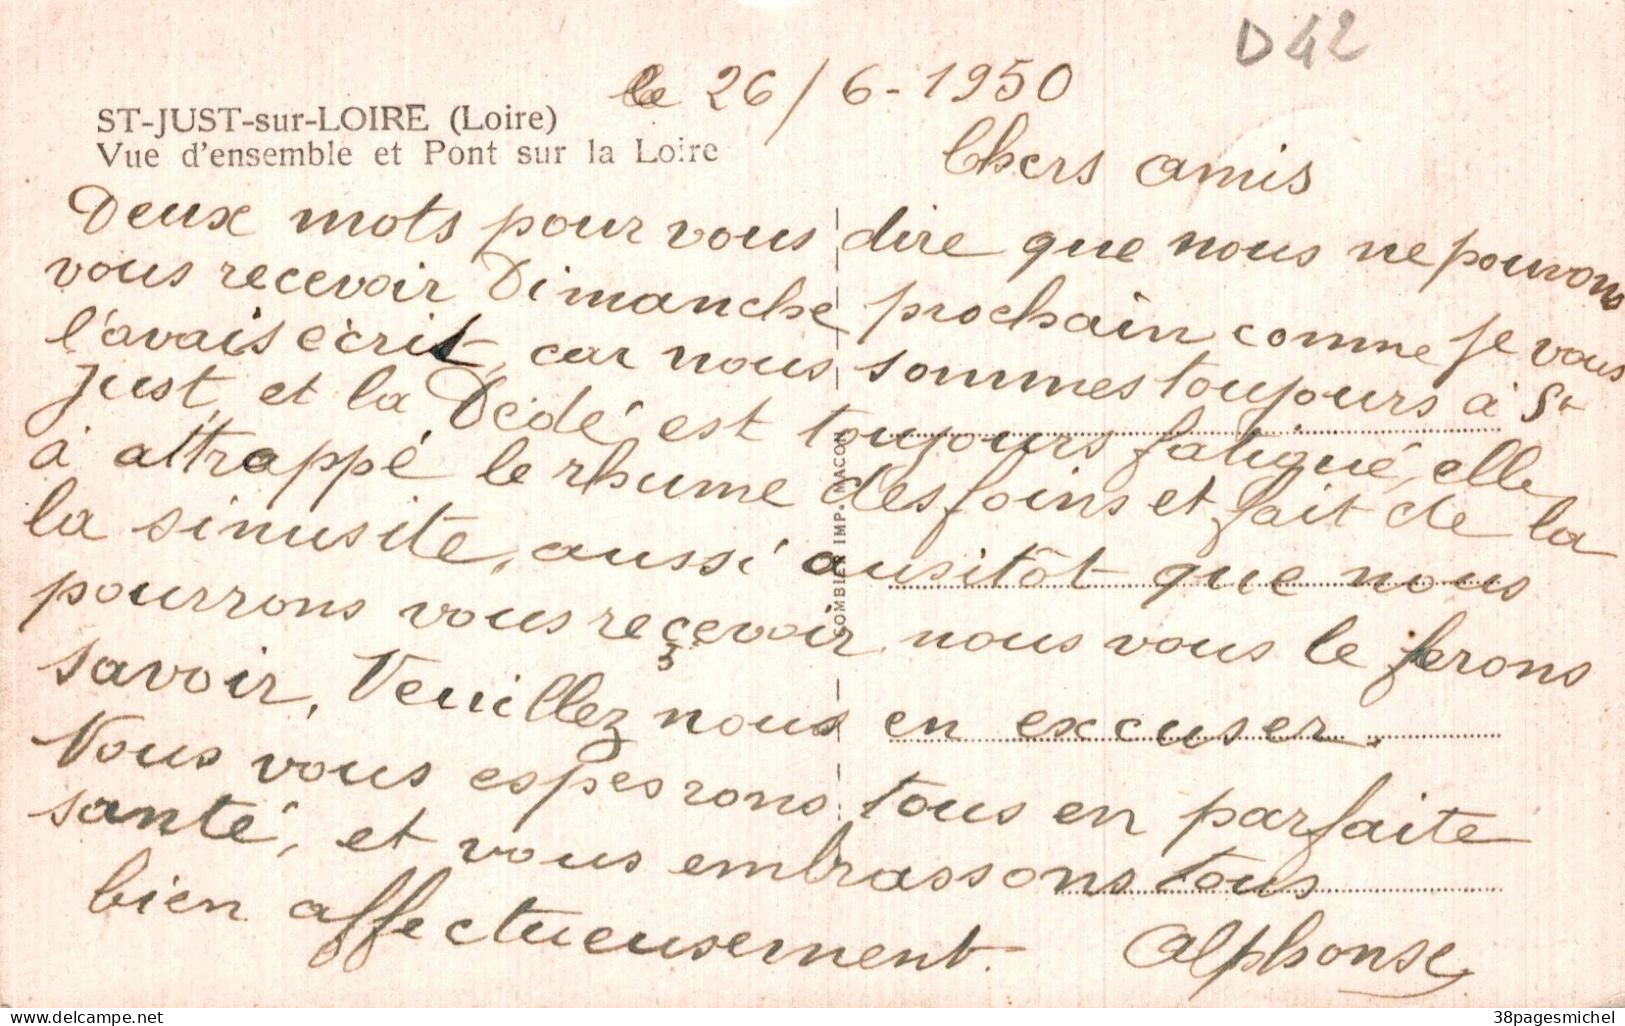 D42
le 26/6-1950
ST-JUST-sur-LOIRE (Loire)
Vue d'ensemble et Pont sur la Loire
Chers amis
Deux mots pour vous dire que nous ne pouvons
vous recevoir Dimanche prochain comme je vous
l'avais écrit, car nous sommes toujours à St
Just, et la Dédé est toujours fatigué, elle
à attrappé le rhume des foins et fait de la
la sinusite, aussi ausitôt que nous
pourrons vous reçevoir nous vous le ferons
savoir, Veuillez nous en excuser.
Nous vous espesrons tous en parfaite
santé, et vous embrassons tous
bien affectueusement. Alphonse
COMBIER IMP. MACON
www.delcampe.net
38pagesmichel